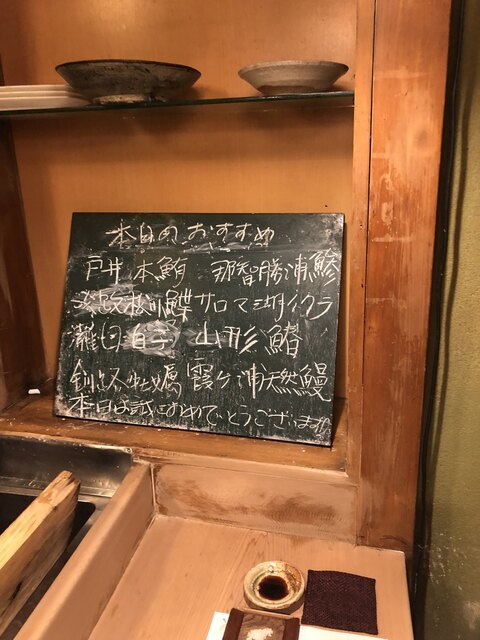 本日のおすすめ
戸井 本鮪 那智勝浦鰺
松川鰈 サロマ湖イクラ
白子 山形 鰆
釧路 牡蠣 霞ヶ浦天然鰻
本日は誠におめでとうございます